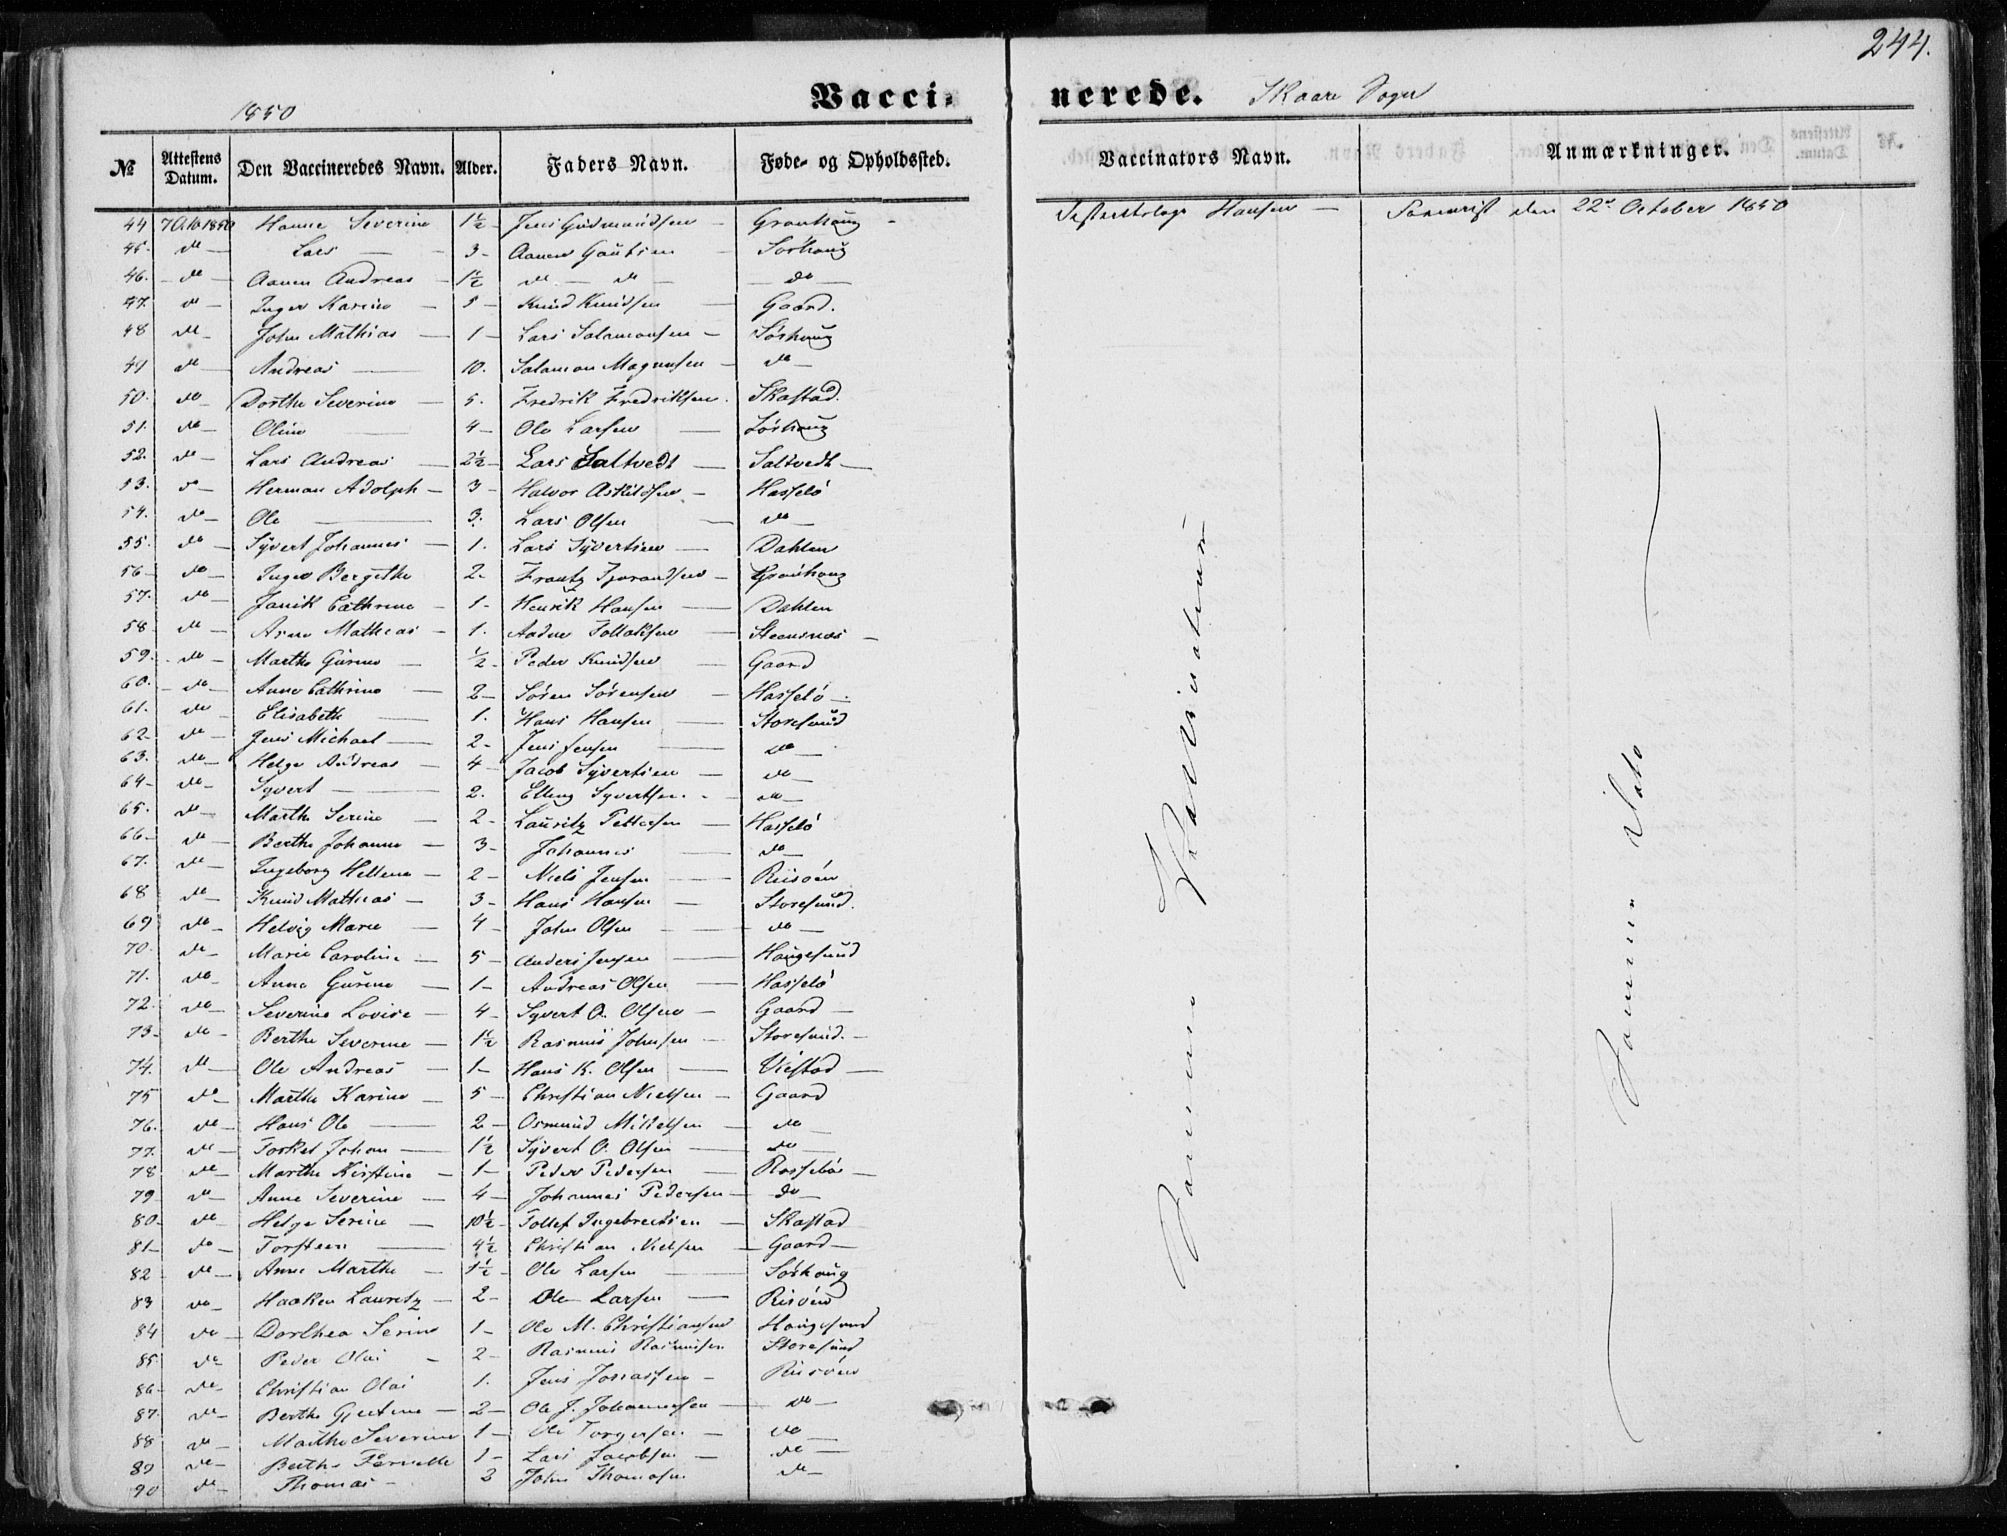 244.
1850 Vacci- nerede. Skaare Sogn
№ Attestens Datum. Den Vaccineredes Navn. Alder. Faders Navn. Føde- og Opholdssted. Vaccinators Navn. Anmærkninger.
44 7 Octb 1850 Hanne Severine 1½ Jens Gudmundsen Grønhaug Hansen den 22de October 1850
45. do Lars 3 Aanen Gautsen Sørhaug
46. do Aanen Andreas 1½ do do do
47. do Inger Karine Knud Knudsen Gaard.
48 do John Mathias 1 Lars Salamonsen Sørhaug
49 do Andreas 10. Salamon Magnusen do
50. do Dorthe Severine 5. Fredrik Fredriksen Skastad.
51. do Oline 4 Ole Larsen Sørhaug
52. do Lars Andreas 2½ Lars Saltvedt Saltvedt
53. do Herman Adolph 3 Halvor Askildsen Hasselö
54. do Ole 3. Lars Olsen do
55. do Syvert Johannes 1. Lars Syvertsen Dahlen
56 do Inger Bergithe 2. Frantz Grønhaug
57. do Janik Cathrine 1 Henrik Hansen Dahlen
58 do Arne Mathias 1. Aadne Tollaksen Steensnæs
59. do Marthe Gurine ½ Peder Knudsen Gaard
60. do Anne Cathrine 2 Sören Sörensen Hasselö
61. do Elisabeth 1. Hans Hansen Storesund
62 do Jens Michael 2 Jens Jensen do
63. do Helge Andreas 4 Jacob Syvertsen do
64 do Syvert 2. Elling Syvertsen do
65. do Marthe Serine 2 Lauritz Pettersen Hasselö
66 do Berthe Johanne 3 Johannes do
67. do Ingeborg Hellene 2 Niels Jensen Risöen
68 do Knud Mathias 3 Hans Hansen Storesund.
69 do Helvig Marie 4 John Olsen do
70. do Marie Caroline 5 Anders Jensen Haugesund
71. do Anne Gurine 1 Andreas Olsen Hasselö
72. do Severine Lovise 4 Syvert O. Olsen Gaard
73 do Berthe Severine 1½ Rasmus Johnsen Storesund.
74. do Ole Andreas 1 Hans K. Olsen Viestad
75 do Marthe Karine 5 Christian Nielsen Gaard
76. do Hans Ole 2 Osmund Mikkelsen do
77. do Torkel Johan 1½ Syvert O. Olsen do
78 do Marthe Kirstine 1 Peder Pedersen Rossebö
79 do Anne Severine 4 Johannes Pedersen do
80 do Helge Serine 10½ Tollef Ingebretsen Skastad
81 do Torsteen 4½ Christian Nielsen Gaard
82 do Anne Marthe 1½ Ole Larsen Sørhaug
83 do Haaken Lauritz 2 Ole Larsen Risöen
84 do Dorthea Serine 1 Ole M. Christiansen Haugesund
85. do Peder Olai 2 Rasmus Rasmusen Storesund
86 do Christian Olai 1. Jens Jonassen Risöen
87. do Berthe Gjertine 2 Ole J. Johannesen do
88 do Marthe Severine 1 Ole Torgersen do
89 do Berthe 1 Lars Jacobsen do
90 do Thomas 2 John Thomasen do